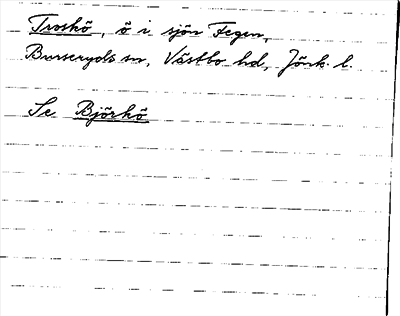 Troskö, ö i sjön Fegen,
Burseryds sn, Västbo hd, Jönk. l.
Se Björkö